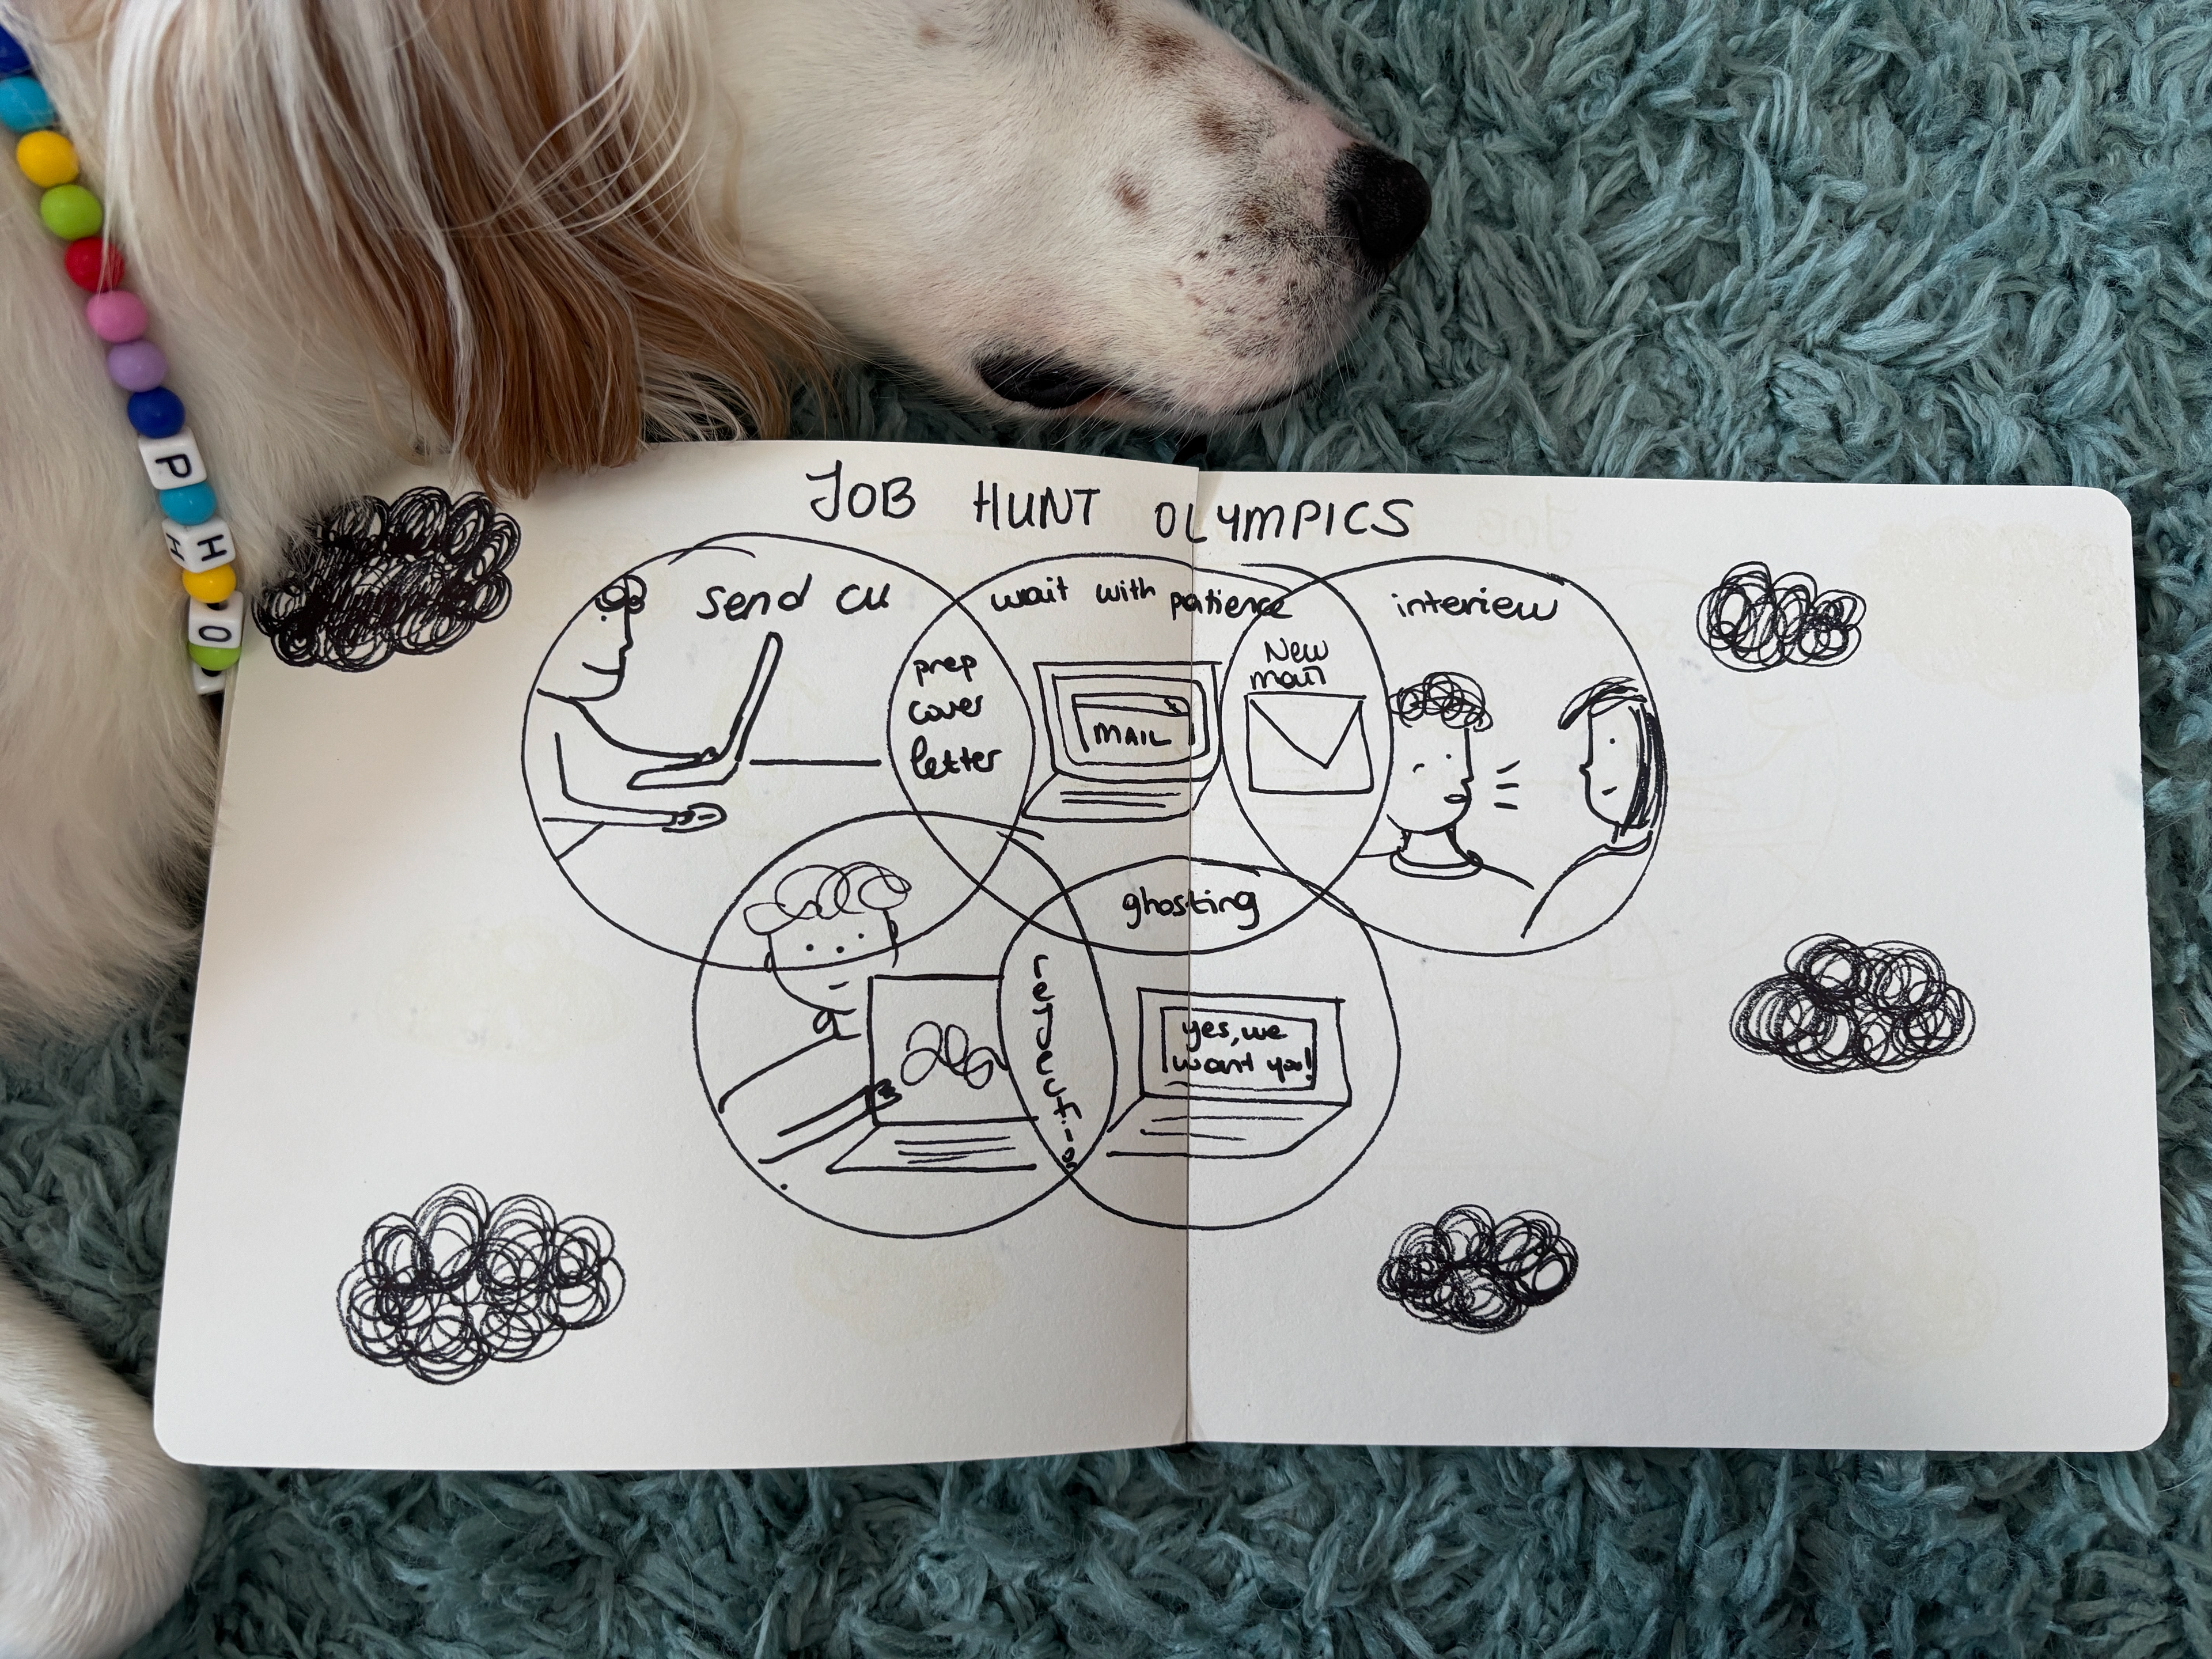 P
H
O
JOB HUNT OLYMPICS
send cv
wait with patience
interiew
prep
cover
letter
MAIL
New
mail
ghosting
rejection
yes, we
want you!